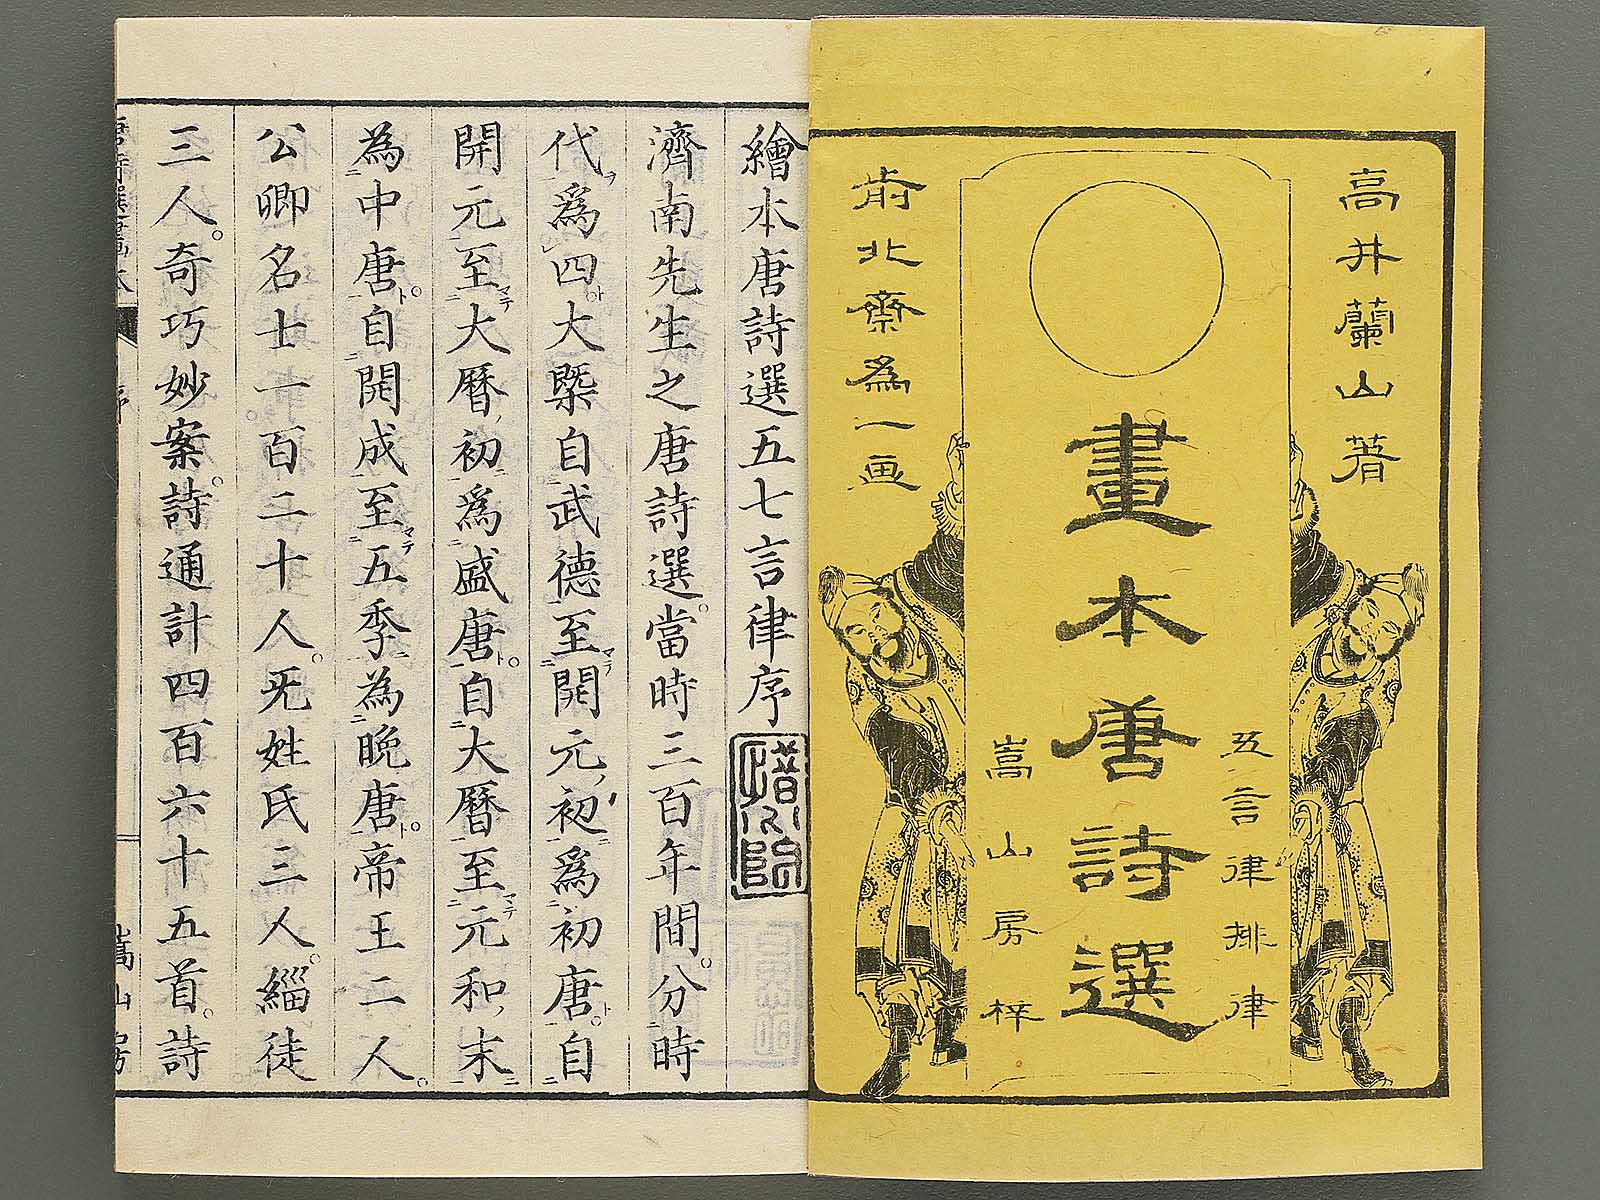 高井蘭山著
五言律排律
畫本唐詩選
嵩山房梓
前北斎為一画
繪本唐詩選五七言律序
濟南先生之唐詩選當時三百年間分時
代爲四大槩自武德至開元初爲初唐自
開元至大曆初爲盛唐自大曆至元和末
為中唐自開成至五季為晩唐帝王二人
公卿名士一百二十人旡姓氏三人緇徒
三人奇巧妙案詩通計四百六十五首詩
嵩山房